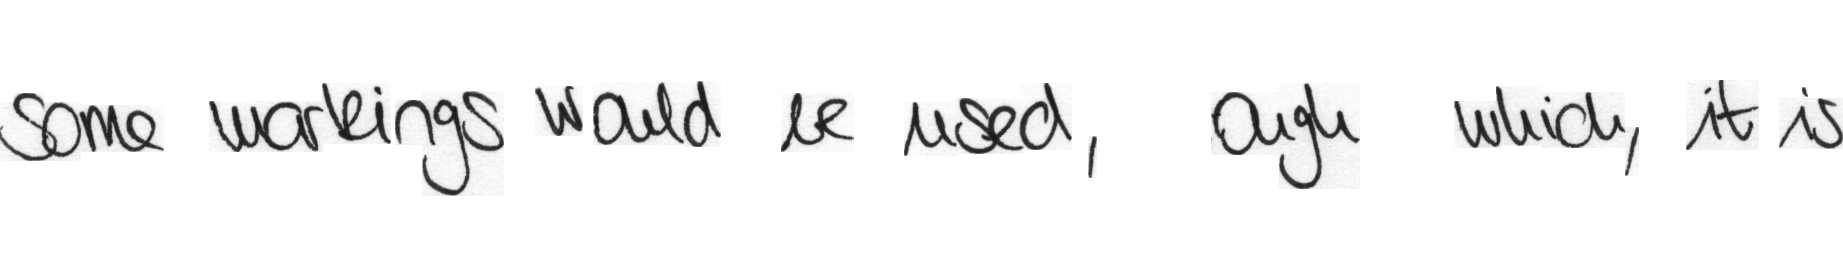 some workings would be used, ough which, it is